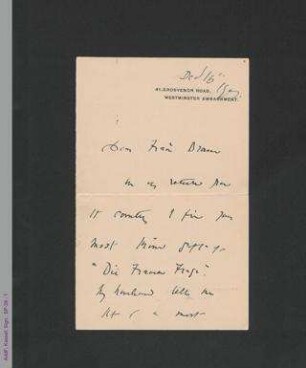 Dec 16th
41, GROSVENOR ROAD,
WESTMINSTER EMBANKMENT.
Dear Frau Braun
on my return
country I find your
most kind gift of
"Die Frauen Frage".
My husband tells me
that is a most